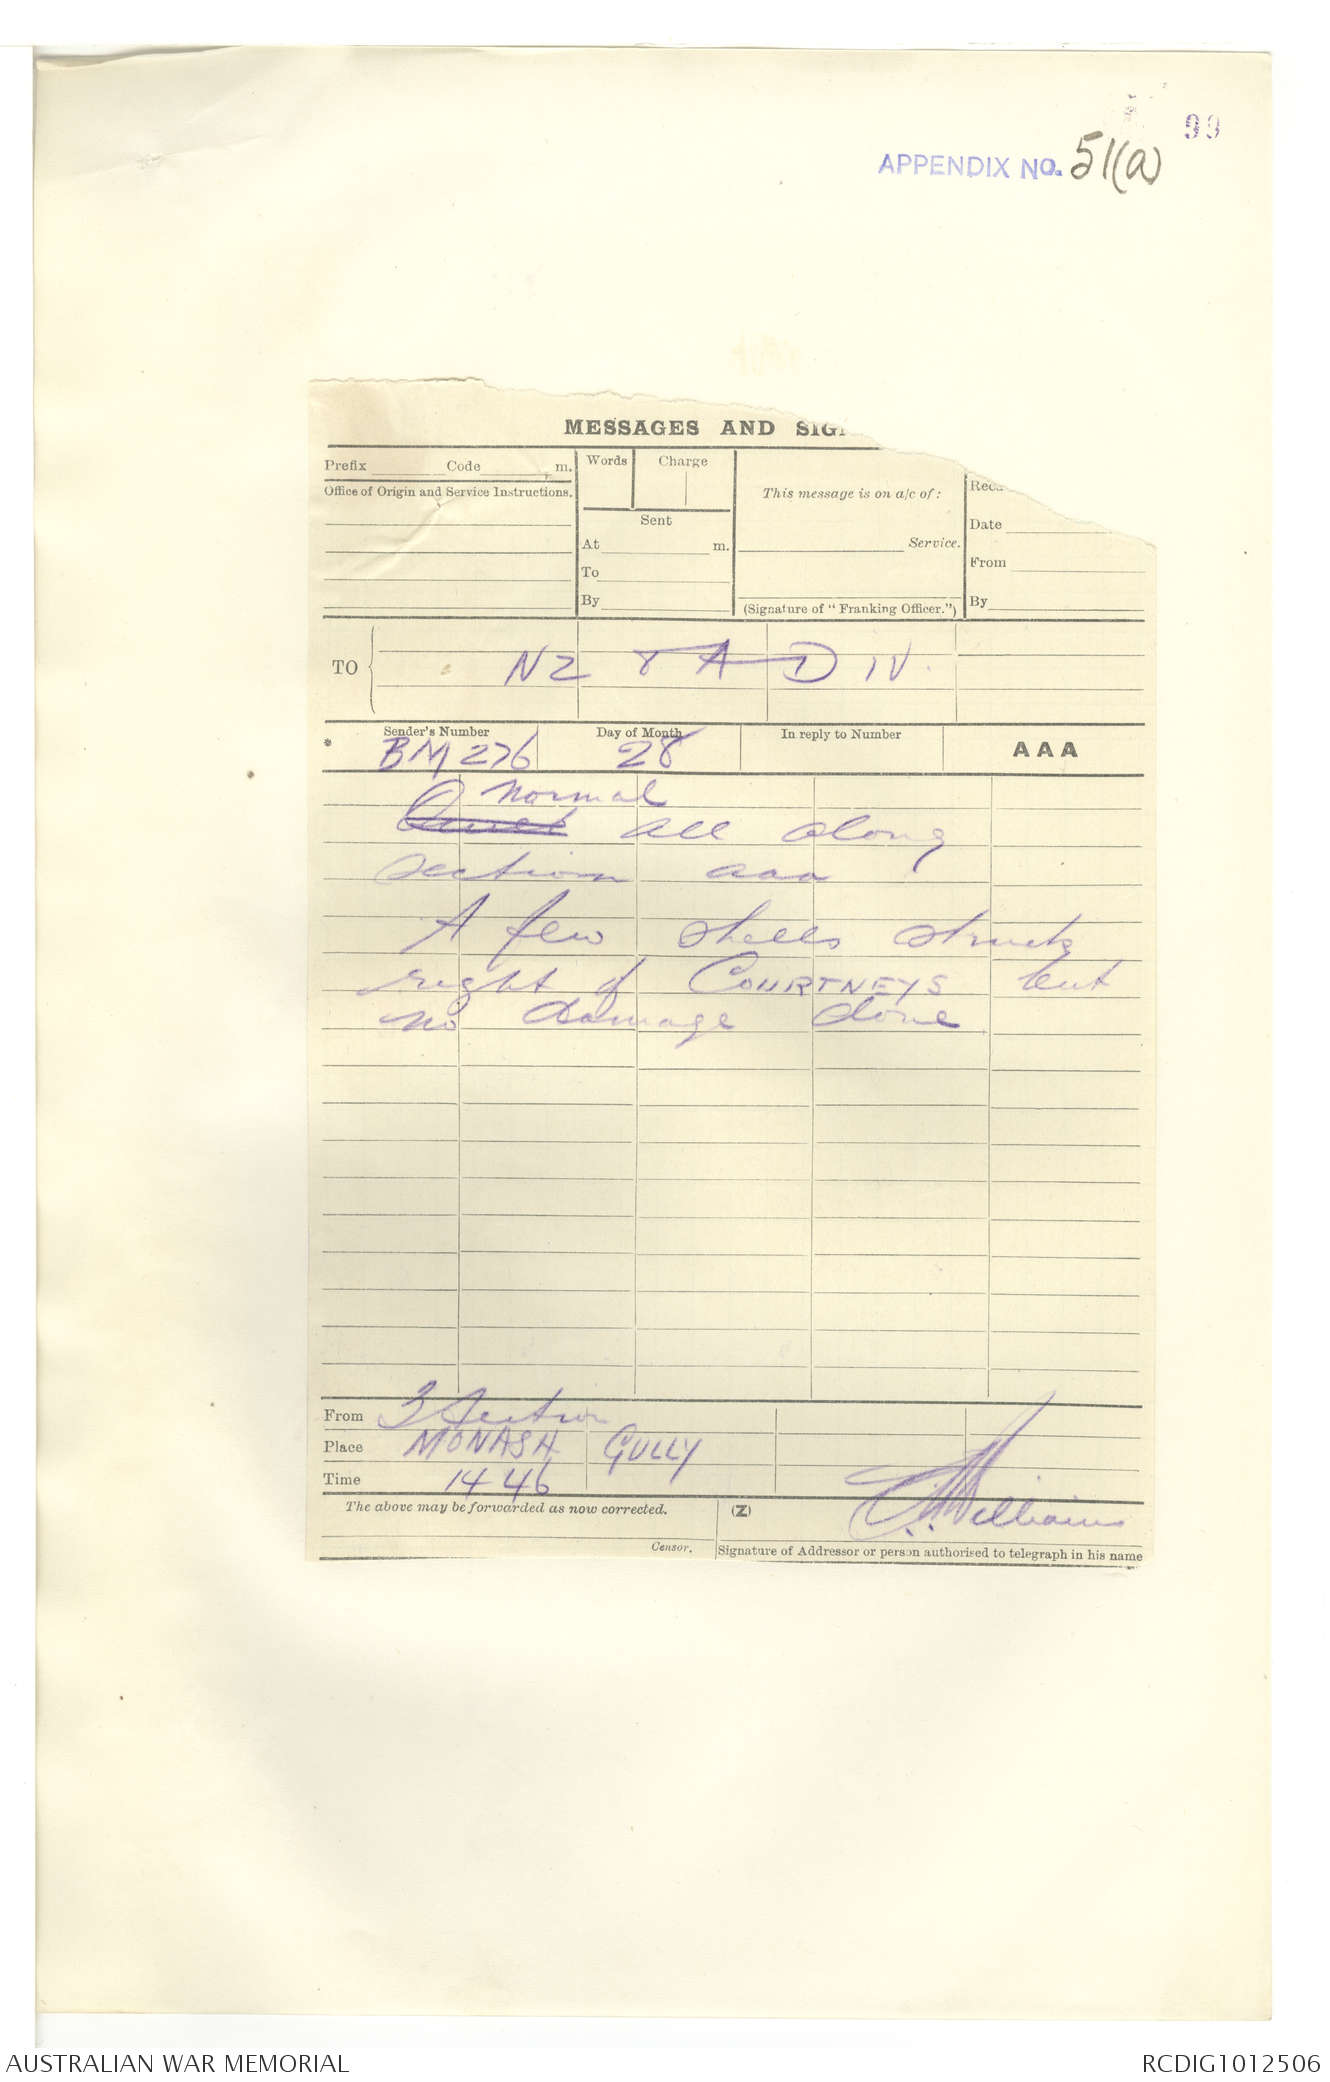 99
APPENDIX No. 51(a)
MESSAGES AND SIG
Prefix Code m.
Words Charge
This message is on a/c of:
Office of Origin and Service Instructions.
Sent
Date
At m.
Service.
From
To
By
(Signature of "Franking Officer.")
By
TO NZ & A DIV.
Sender's Number Day of Month In reply to Number AAA
* BM 276 28
normal
Quiet all along
section aaa
A few shells struck
right of COURTNEYS but
no damage done
From 3 Section
Place MONASH GULLY
Time 1446
The above may be forwarded as now corrected. (Z) Williams
Censor. Signature of Addressor or person authorised to telegraph in his name
AUSTRALIAN WAR MEMORIAL RCDIG1012506